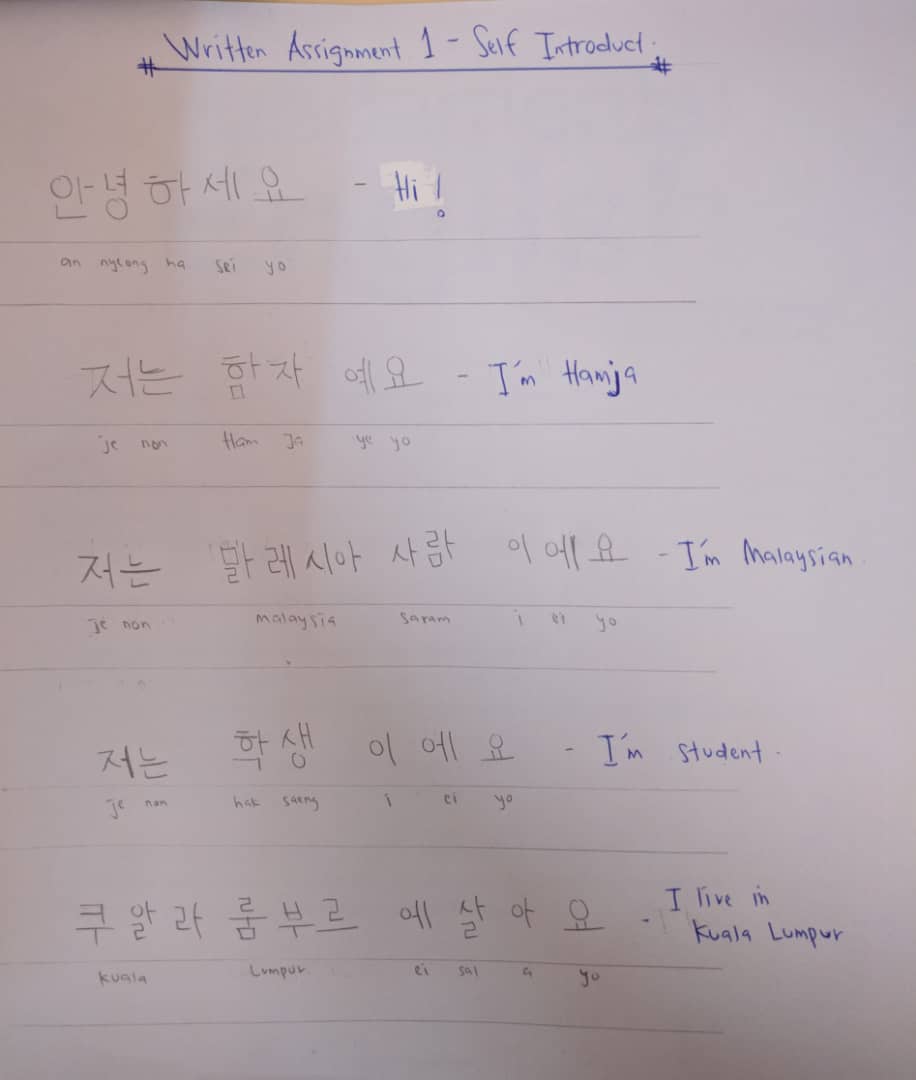 # Written Assignment 1 - Self Introduct. #
안녕하세요 - Hi!
an nyeong ha sei yo
저는 함자 예요 - I'm Hamja
je non Ham Ja ye yo
저는 말레시아 사람 이에요 - I'm Malaysian.
je non malaysia saram i ei yo
저는 학생 이에요 - I'm student.
je non hak saeng i ei yo
쿠알라 룸부르 에 살아요 - I live in Kuala Lumpur
kuala Lumpur ei sal a yo